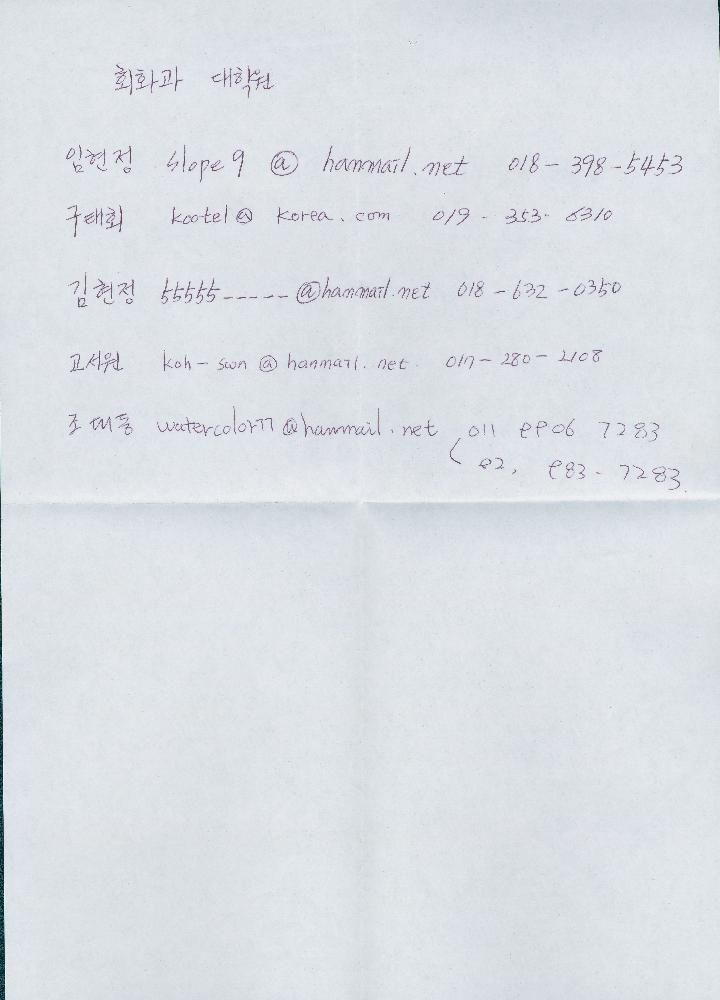 회화과 대학원
임현정 slope9@hanmail.net 018-398-5453
구태회 kootel@korea.com 019-353-6310
김현정 55555-----@hanmail.net 018-632-0350
고서원 koh-swn@hanmail.net 017-280-2108
조대동 watercolor77@hanmail.net 011 9906 7283
02, 983-7283